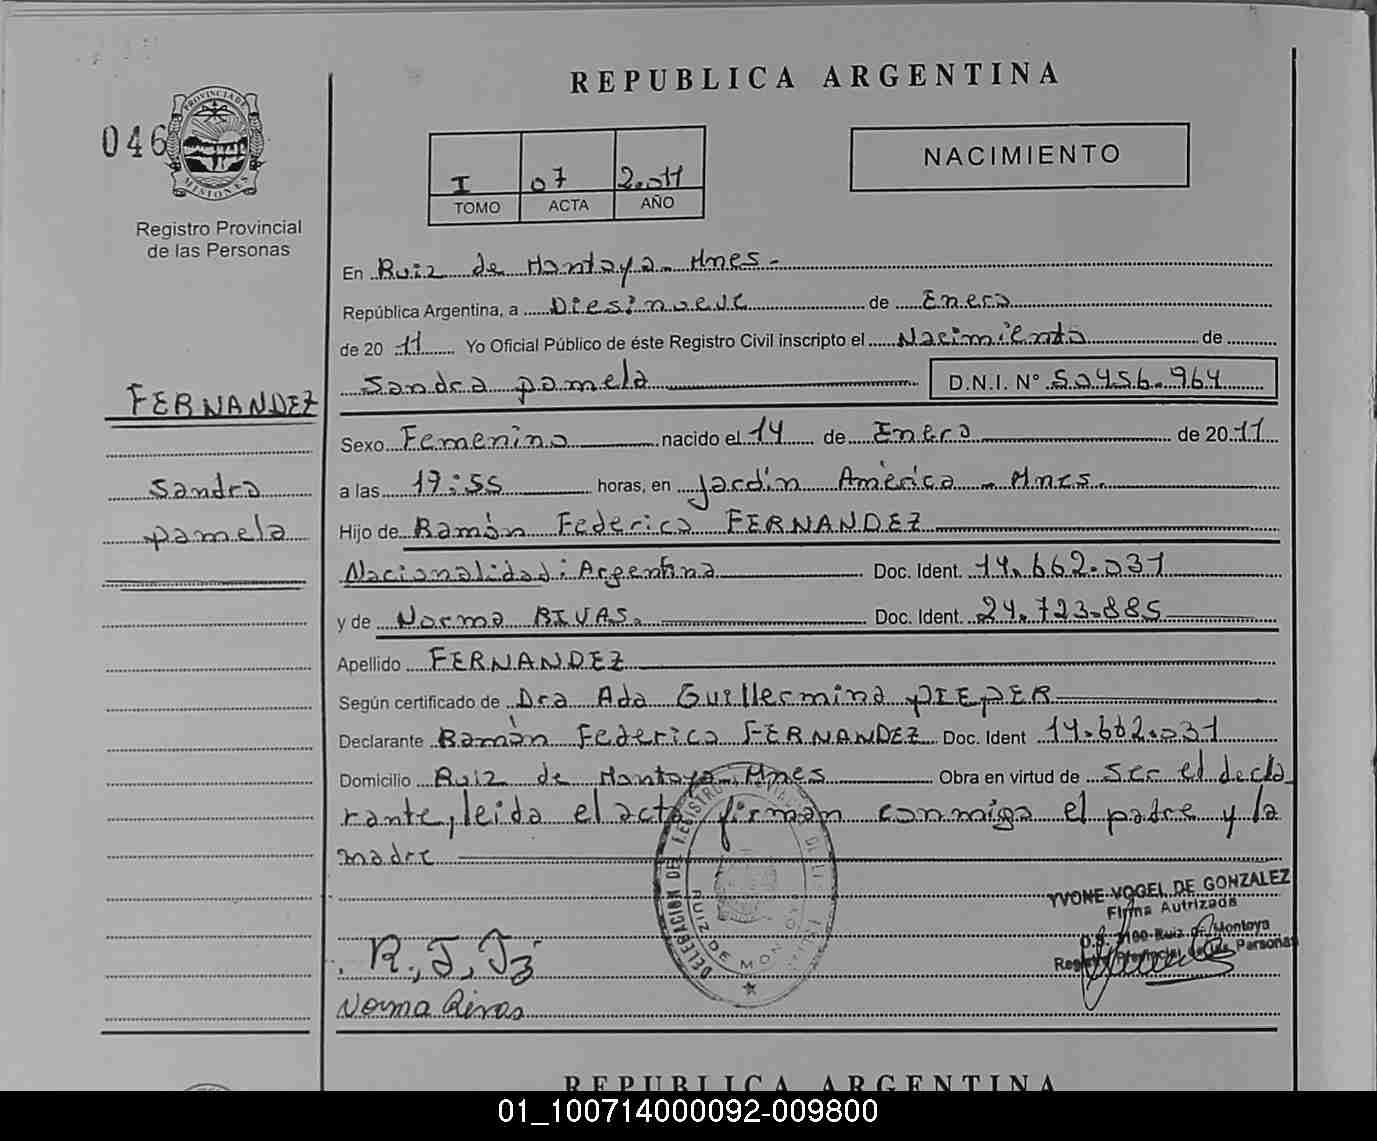 REPUBLICA ARGENTINA
046
PROVINCIA DE
MISIONES
Registro Provincial
de las Personas
I 07 2.011
TOMO ACTA AÑO
NACIMIENTO
En Ruiz de Montoya - Mnes -
República Argentina, a Diesinueve de Enero
de 20 11 Yo Oficial Público de éste Registro Civil inscripto el Nacimiento de
Sandra pamela D.N.I. Nº 50456.964
FERNANDEZ
Sandra
pamela
Sexo Femenino nacido el 14 de Enero de 20 11
a las 19:55 horas, en Jardín América - Mnes.
Hijo de Ramón Federico FERNANDEZ
Nacionalidad: Argentina Doc. Ident. 14.662.031
y de Norma RIVAS. Doc. Ident. 24.723.885
Apellido FERNANDEZ
Según certificado de Dra Ada Guillermina PIEPER
Declarante Ramón Federico FERNANDEZ Doc. Ident 14.662.031
Domicilio Ruiz de Montoya, Mnes Obra en virtud de ser el decla
rante, leida el acta firman conmigo el padre y la
madre
DELEGACION DEL REGISTRO
RUIZ DE MONTOYA
YVONE VOGEL DE GONZALEZ
Firma Autrizada
Ruiz de Montoya
Registro Provincial de las Personas
Norma Rivas
REPUBLICA ARGENTINA
01_100714000092-009800